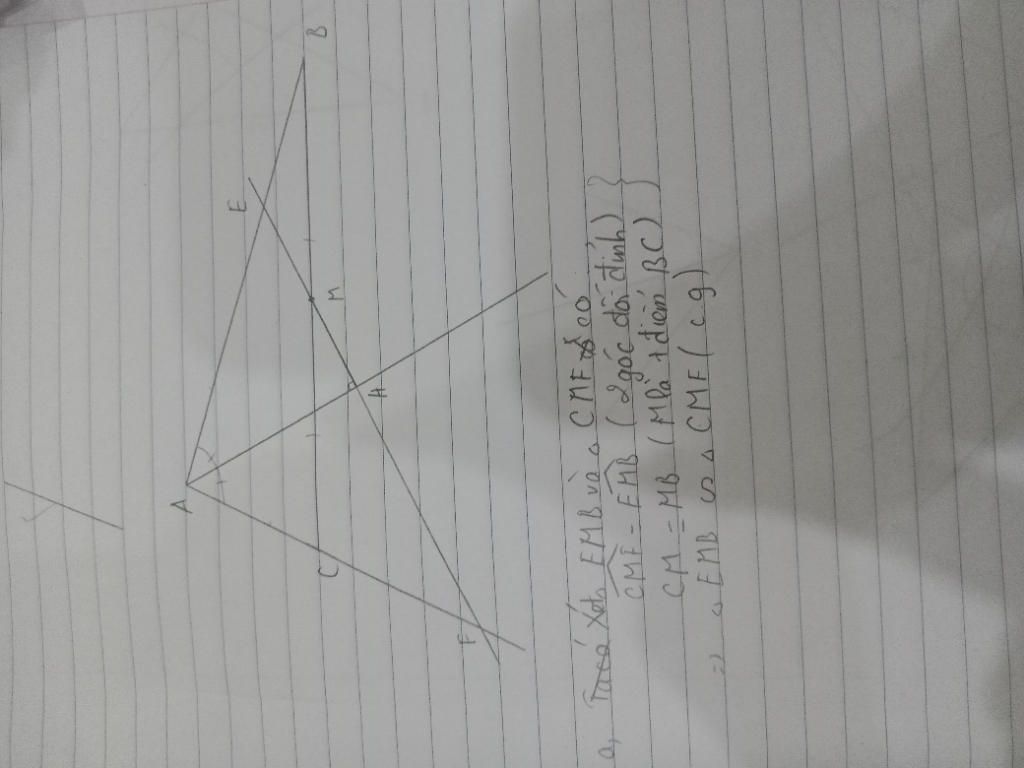 B
E
M
A
H
C
F
a, Ta có Xét △ EMB và △ CMF có
CMF = EMB (2 góc đối đỉnh)
CM = MB (M là t điểm BC)
=> △ EMB ∽ △ CMF (c g)